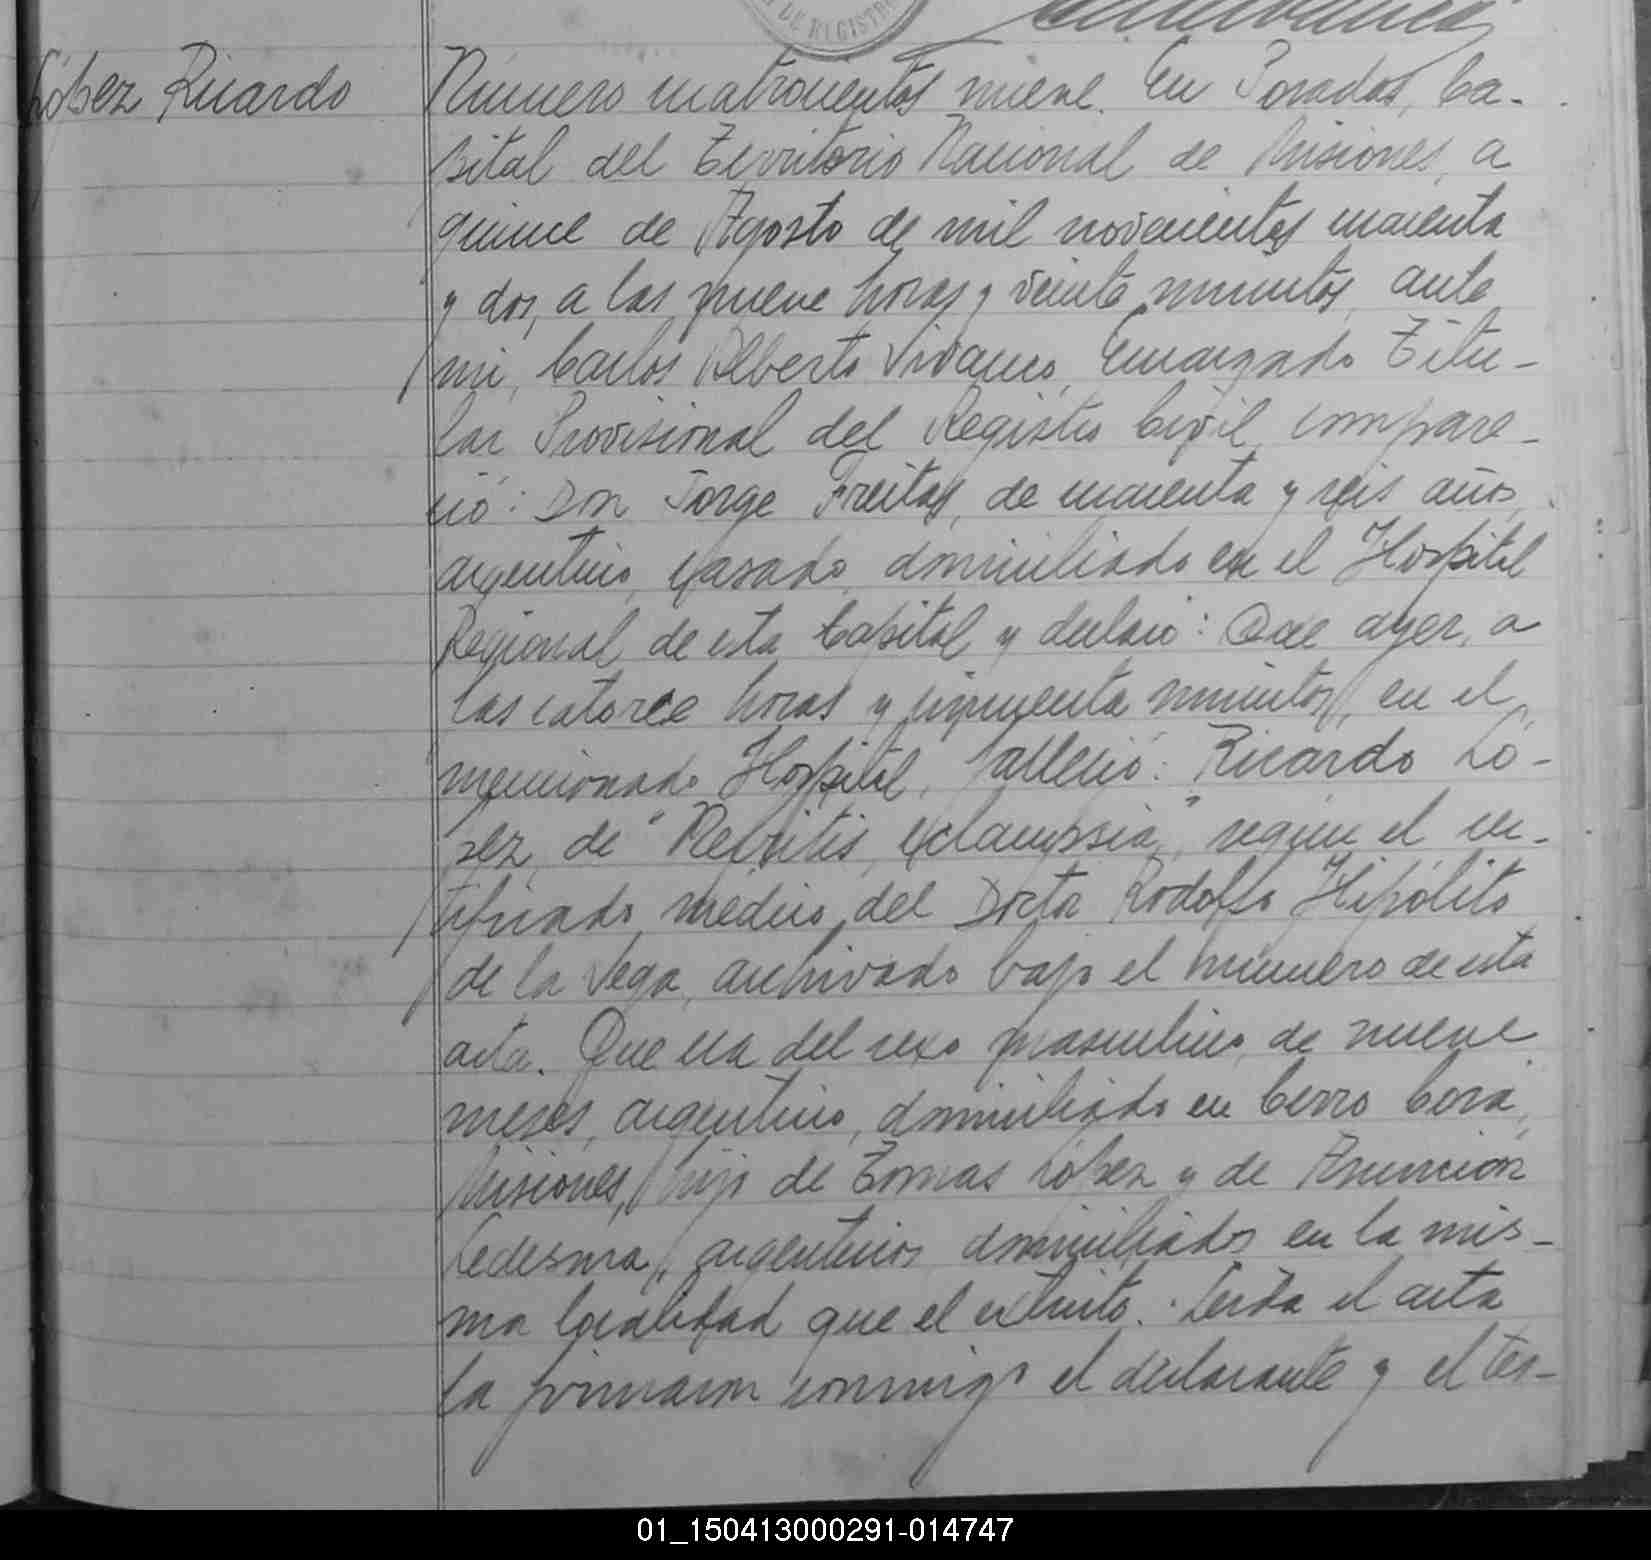 DE REGISTRO
López Ricardo
Número cuatrocientos nueve. En Posadas, Ca-
pital del Territorio Nacional de Misiones, a
quince de Agosto de mil novecientos cuarenta
y dos, a las nueve horas y veinte minutos, ante
mi, Carlos Alberto Vivanco, Encargado Titu-
lar Provisional del Registro Civil, compare-
ció: Don Jorge Freitas, de cuarenta y seis años,
argentino, casado, domiciliado en el Hospital
Regional de esta Capital y declaró: Que ayer, a
las catorce horas y cincuenta minutos, en el
mencionado Hospital, falleció: Ricardo Ló-
pez, de "Nefritis, eclampsia", según el cer-
tificado médico del Doctor Rodolfo Hipólito
de la Vega, archivado bajo el número de esta
acta. Que era del sexo masculino, de nueve
meses, argentino, domiciliado en Cerro Corá,
Misiones, hijo de Tomas López y de Asunción
Ledesma, argentinos, domiciliados en la mis-
ma localidad que el extinto. Leída el acta
la firmaron conmigo el declarante y el tes-
01_150413000291-014747